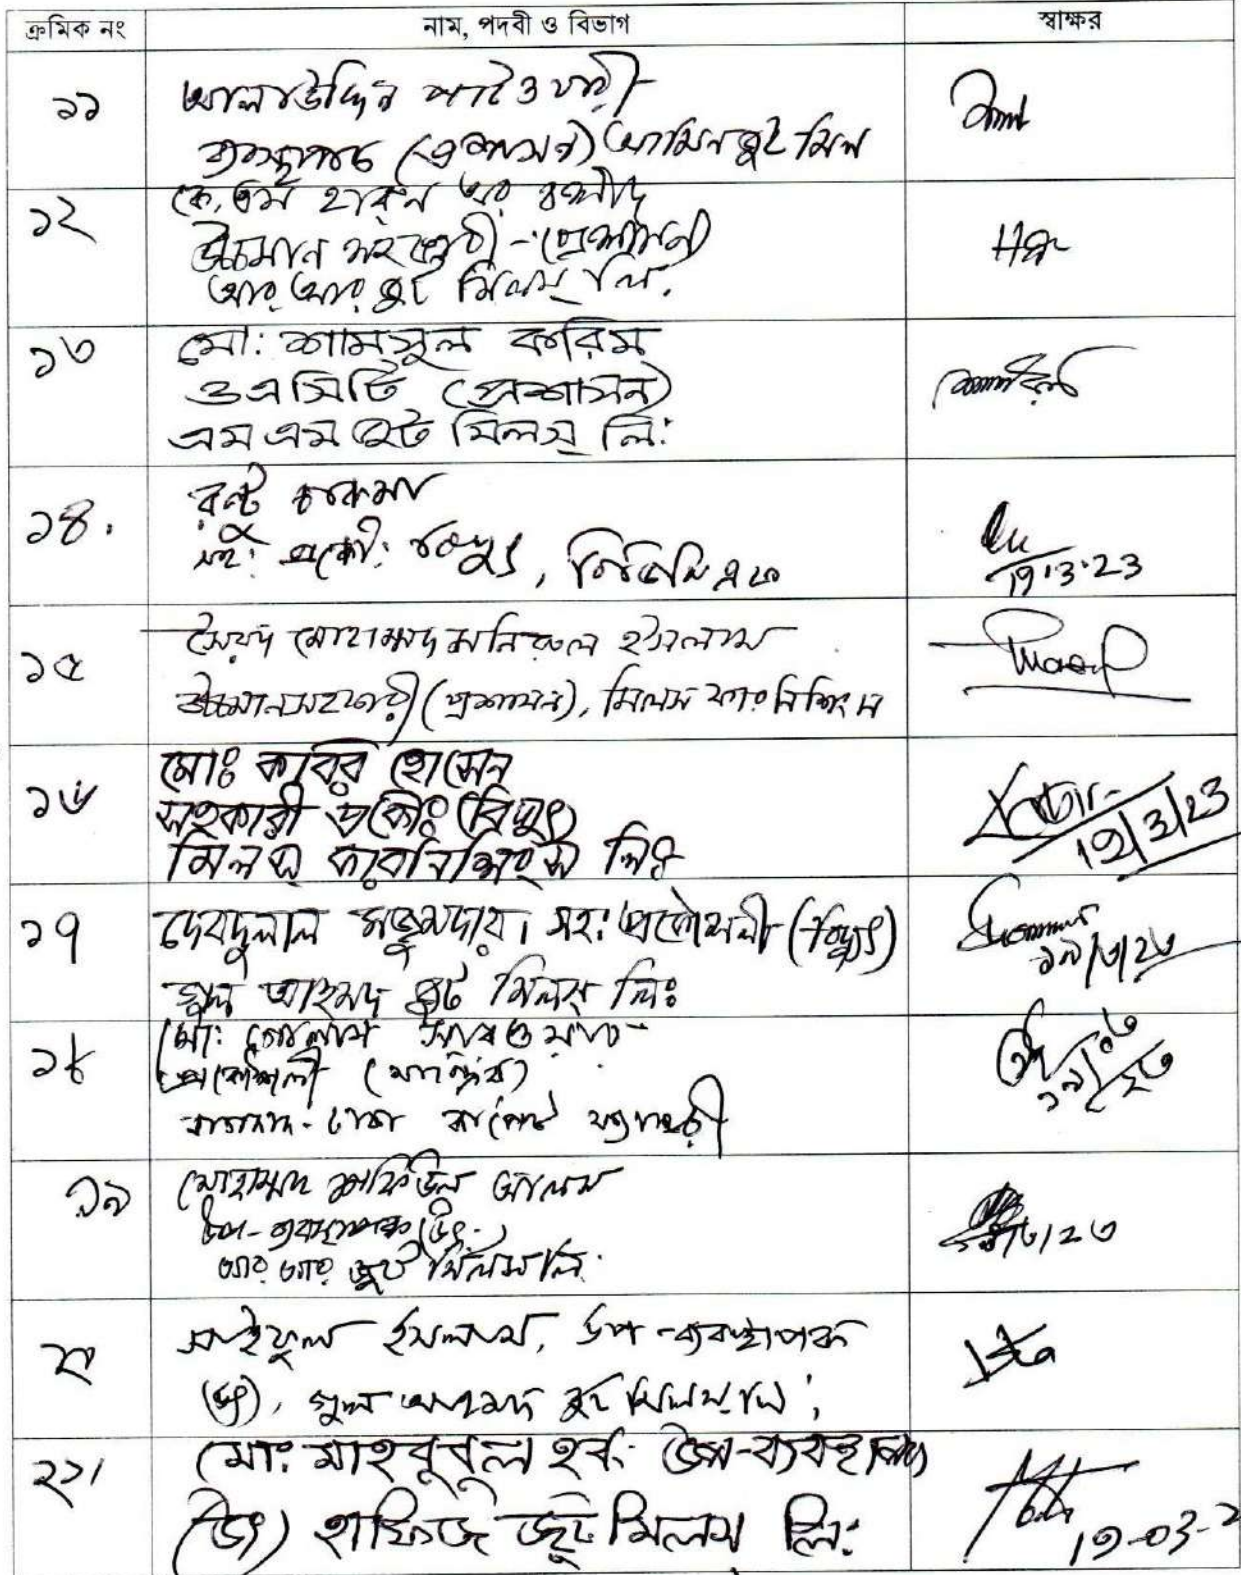 ক্রমিক নং নাম, পদবী ও বিভাগ স্বাক্ষর
১১ আলাউদ্দিন পাটওয়ারী
ব্যবস্থাপক (প্রশাসন) আমিন জুট মিল
১২ কে, এম হারুন অর রশীদ
উচ্চমান সহকারী - (প্রশাসন)
আর আর জুট মিলস্ লি.
১৩ মো: শামসুল করিম
ওএসিটি (প্রশাসন)
এম এম জুট মিলস্ লি:
১৪. রন্টু চাকমা
সহ: প্রকৌ: বিদ্যুৎ,
19.3.23
১৫ সৈয়দ মোহাম্মদ মনিরুল ইসলাম
উচ্চমানসহকারী (প্রশাসন), মিলস ফারনিশিংস
১৬ মোঃ কবির হোসেন
সহকারী প্রকৌঃ (বিদ্যুৎ)
মিলস্ ফারনিশিংস লিঃ
Kabir
19/3/23
১৭ দেবদুলাল মজুমদার। সহ: প্রকৌশলী (বিদ্যুৎ)
গুল আহমদ জুট মিলস্ লিঃ
১৯/৩/২৩
১৮ মো: গোলাম সারওয়ার
প্রকৌশলী (যান্ত্রিক)
কার্পেট ফ্যাক্টরী
১৯/০৩/২৩
১৯ মোহাম্মদ শফিউল আলম
উপ-ব্যবস্থাপক (উৎ.)
আর আর জুট মিলস লি:
২০ সাইফুল ইসলাম, উপ-ব্যবস্থাপক
(উৎ), গুল আহমদ জুট মিলস্ লি:
২১। মো: মাহবুবুল হক: উপ-ব্যবস্থাপক
(উৎ) হাফিজ জুট মিলস্ লি:
19-03-2